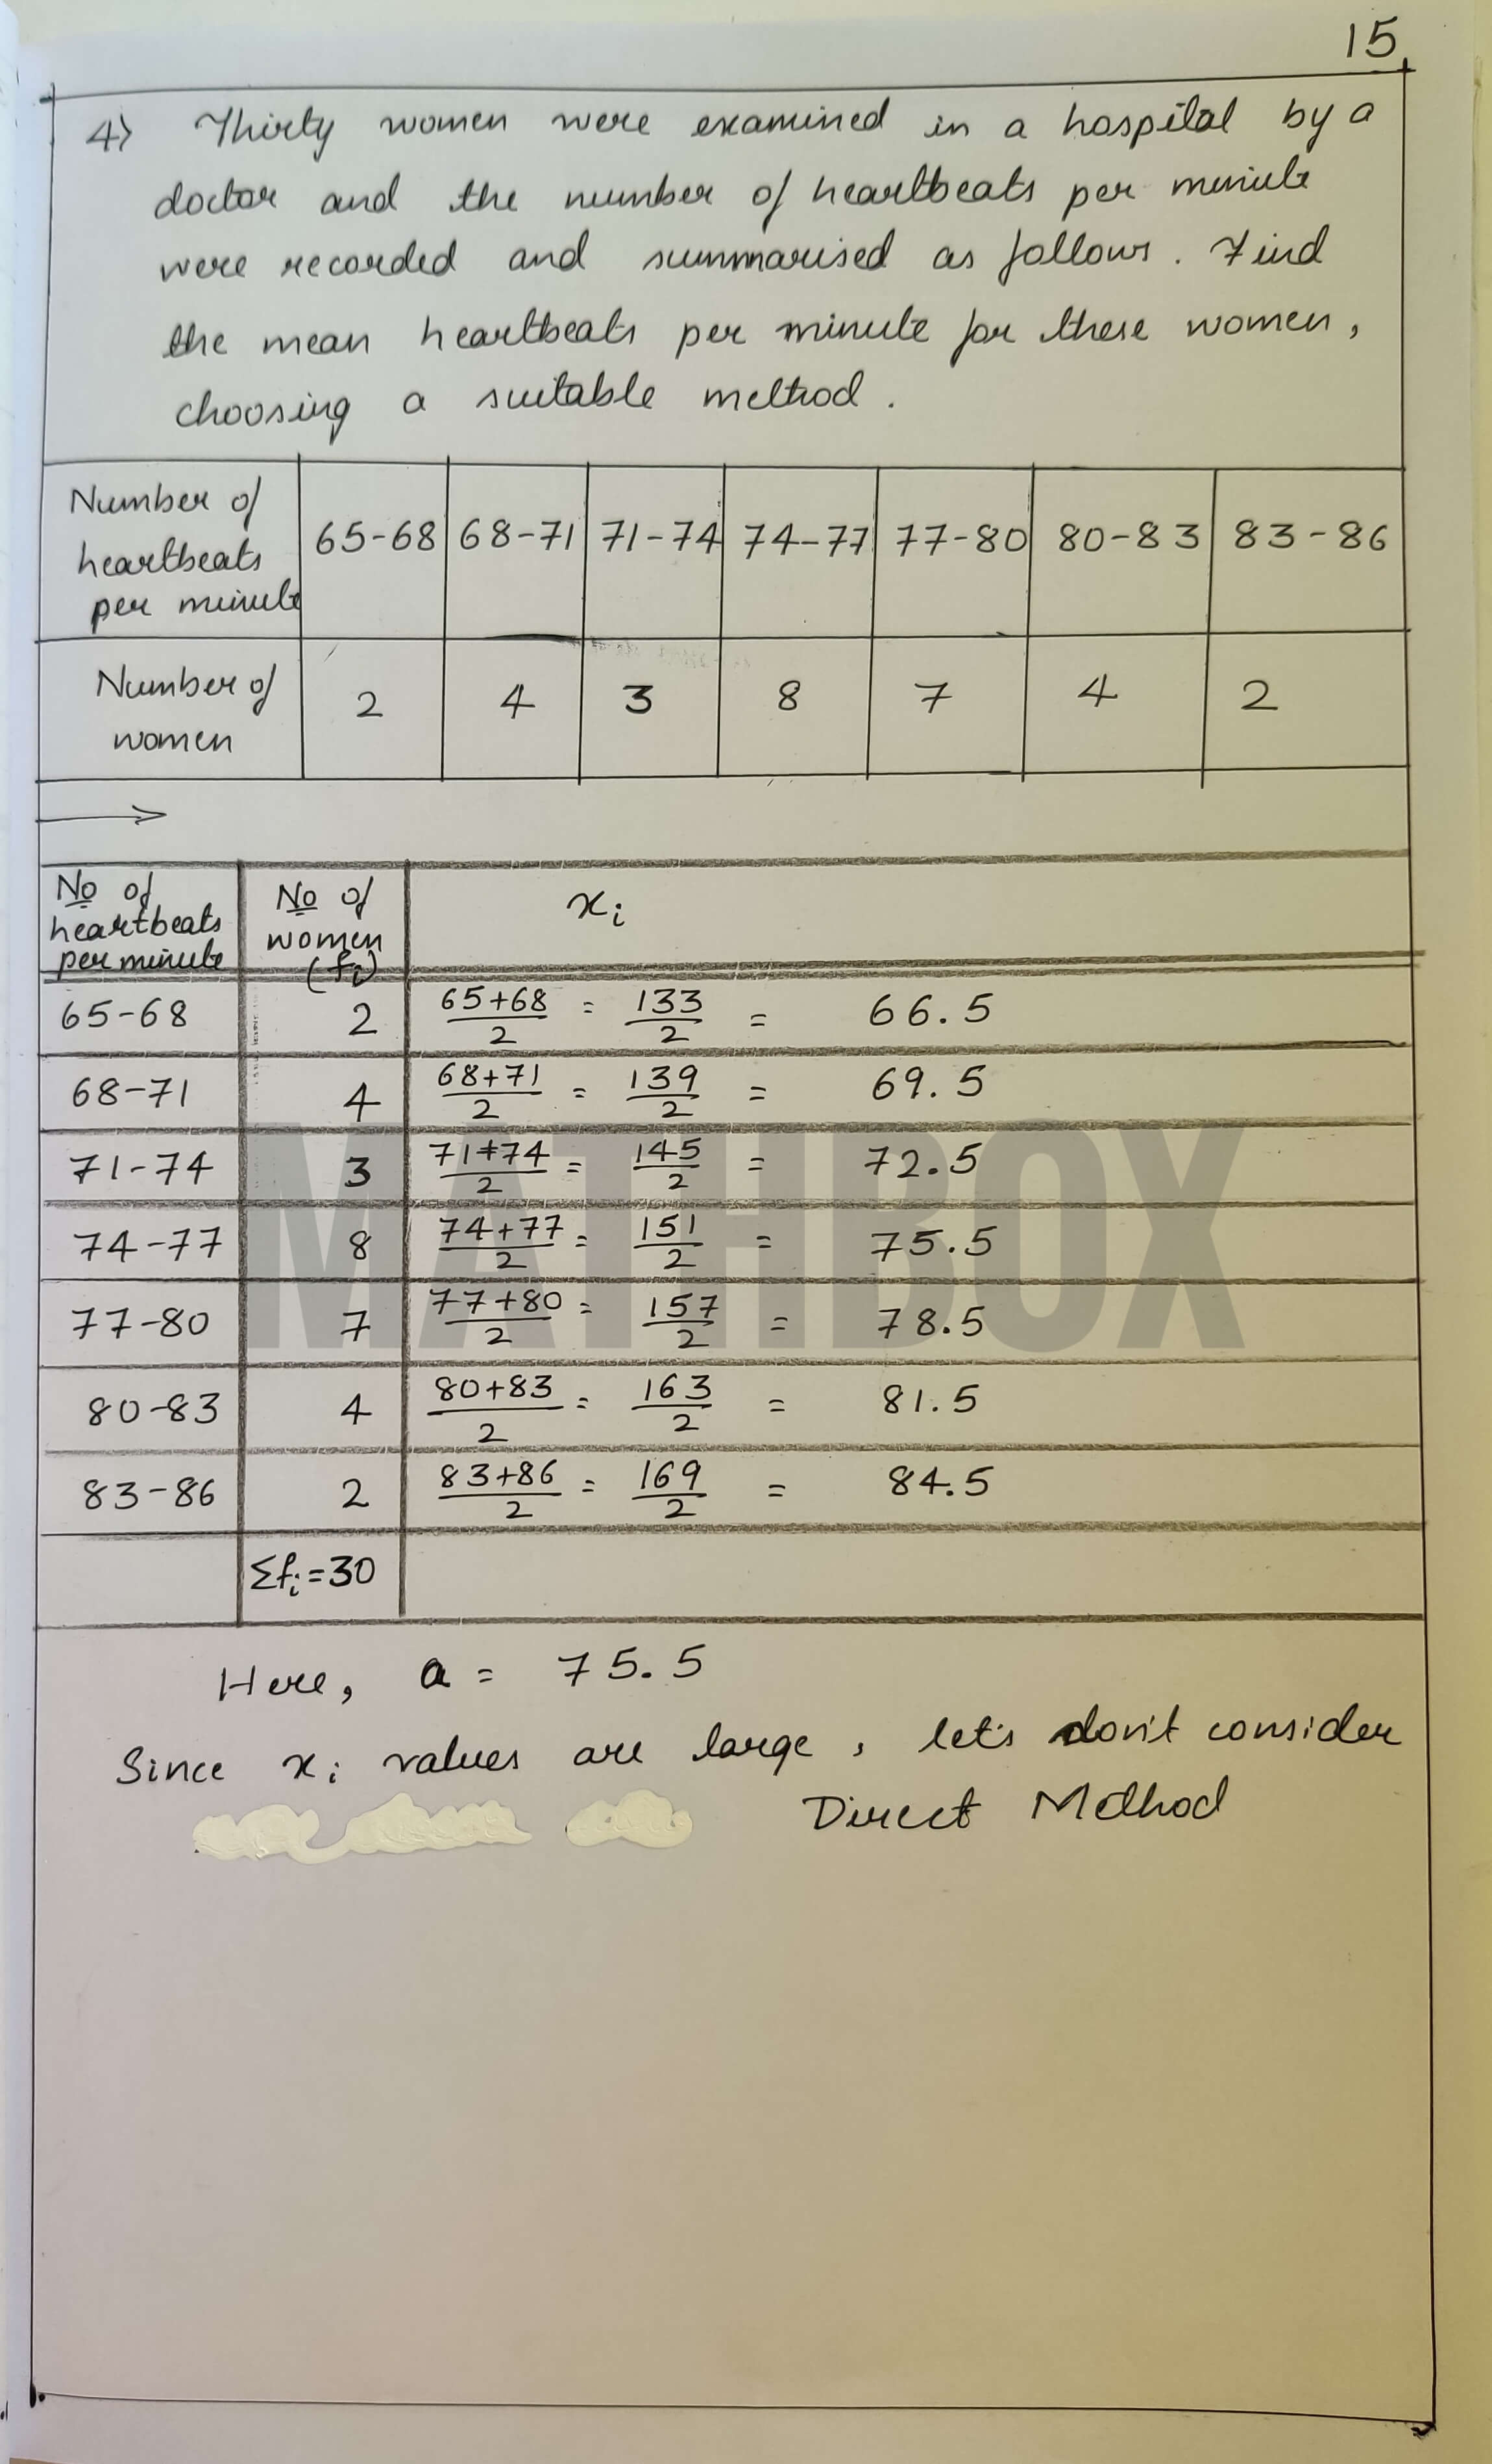 15
4) Thirty women were examined in a hospital by a
doctor and the number of heartbeats per minute
were recorded and summarised as follows. Find
the mean heartbeats per minute for these women,
choosing a suitable method.
Number of heartbeats per minute 65-68 68-71 71-74 74-77 77-80 80-83 83-86
Number of women 2 4 3 8 7 4 2
No of heartbeats per minute No of women (fi) xi
65-68 2 65+68/2 = 133/2 = 66.5
68-71 4 68+71/2 = 139/2 = 69.5
71-74 3 71+74/2 = 145/2 = 72.5
74-77 8 74+77/2 = 151/2 = 75.5
77-80 7 77+80/2 = 157/2 = 78.5
80-83 4 80+83/2 = 163/2 = 81.5
83-86 2 83+86/2 = 169/2 = 84.5
Σfi=30
MATHBOX
Here, a = 75.5
Since xi values are large, let's don't consider
Direct Method